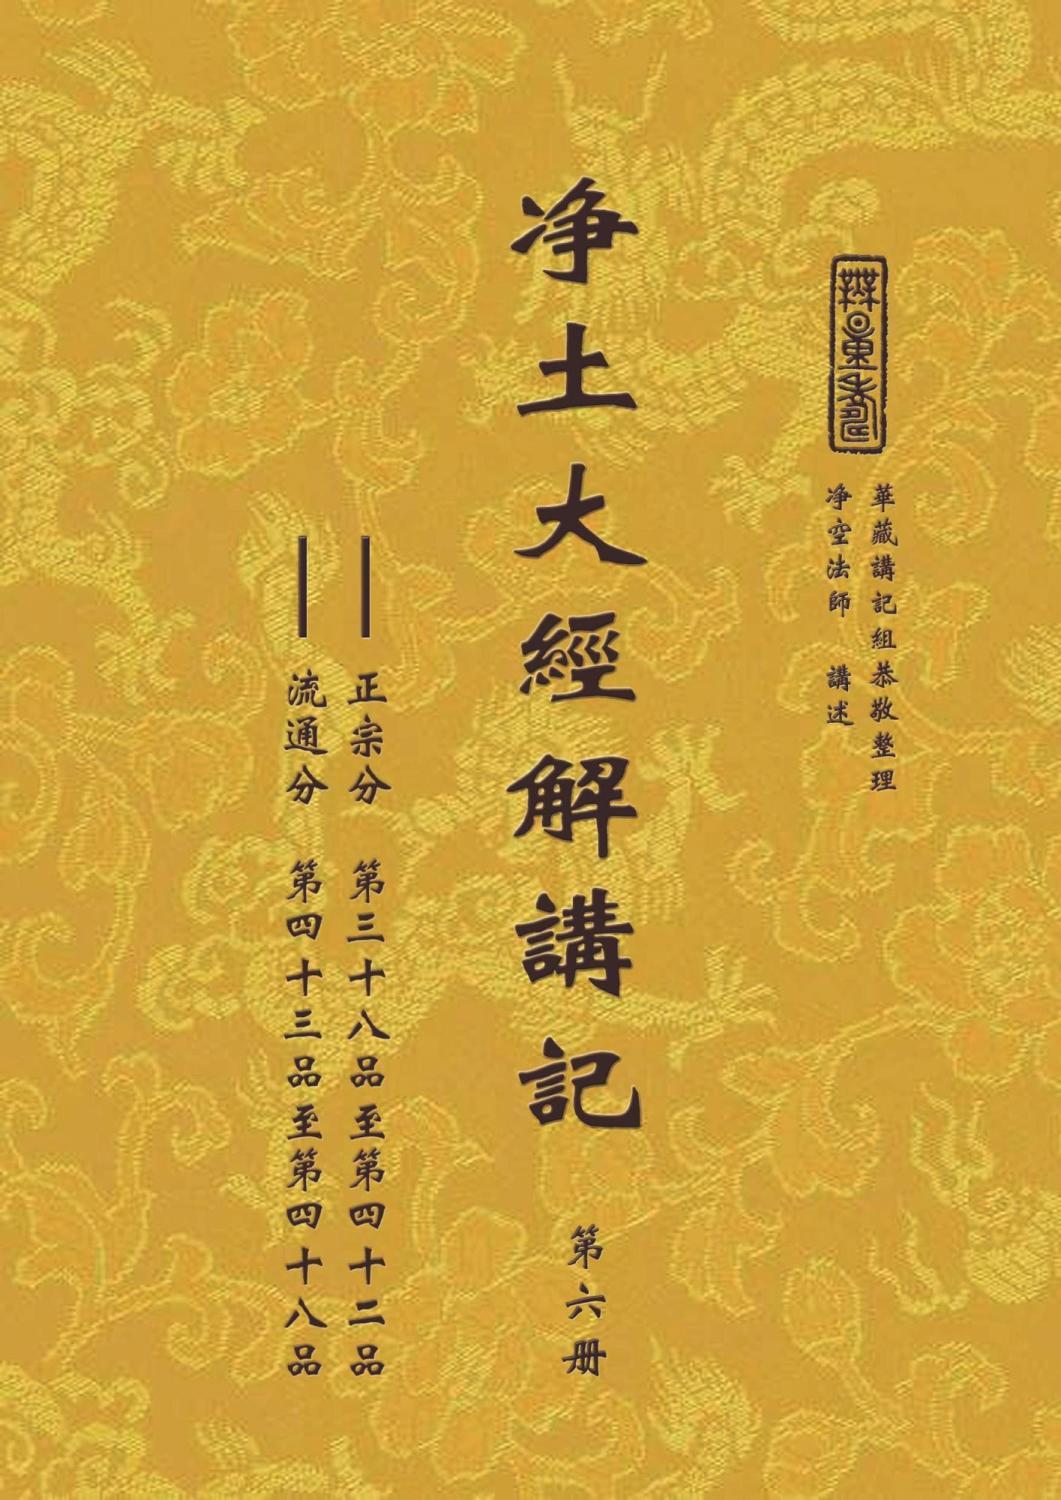 華藏講記組恭敬整理
净空法師　講述
净土大經解講記　第六册
——正宗分　第三十八品至第四十二品
——流通分　第四十三品至第四十八品